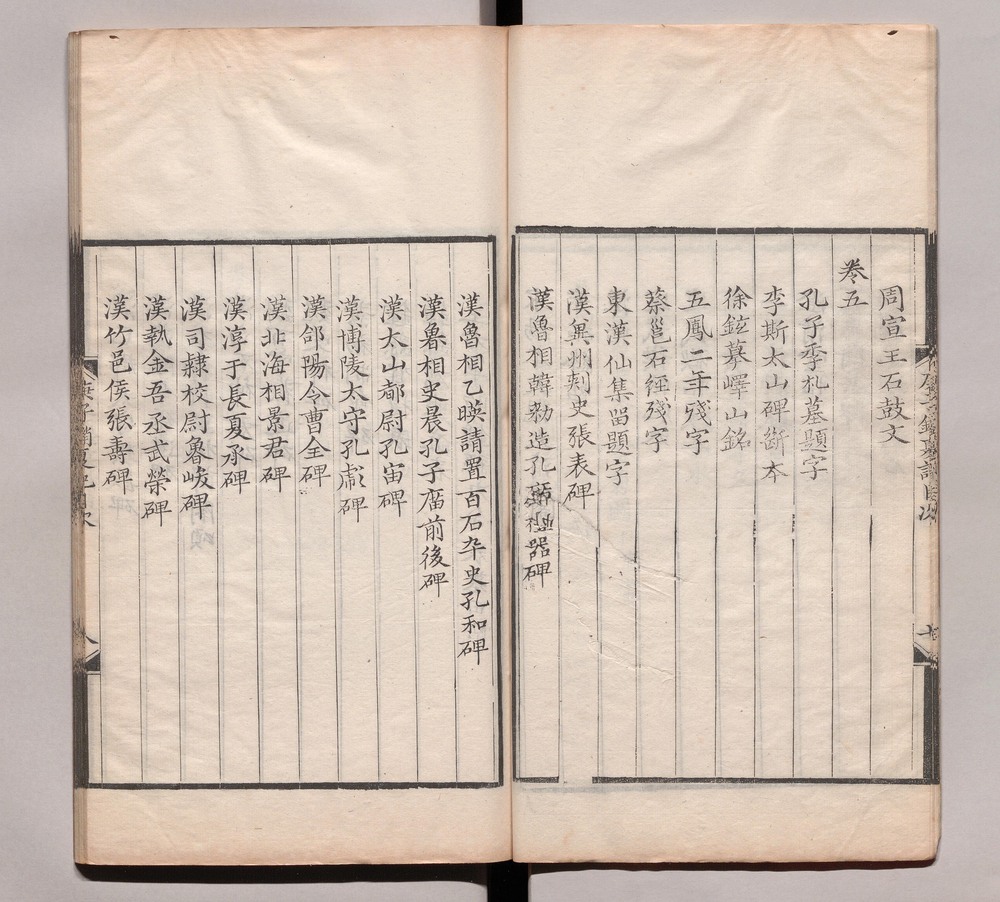 周宣王石鼓文
卷五
孔子季札墓題字
李斯太山碑斷本
徐鉉摹嶧山銘
五鳳二年殘字
蔡邕石經殘字
東漢仙集留題字
漢兾州刾史張表碑
漢魯相韓勑造孔廟禮器碑
漢魯相乙暎請置百石卒史孔和碑
漢魯相史晨孔子廟前後碑
漢太山都尉孔宙碑
漢博陵太守孔彪碑
漢郃陽令曹全碑
漢北海相景君碑
漢淳于長夏承碑
漢司隸校尉魯峻碑
漢執金吾丞武榮碑
漢竹邑侯張壽碑
庚子銷夏記目次
八